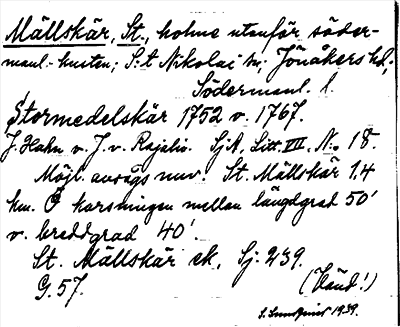 Mällskär, St., holme utanför söder-
manl. kusten; S:t Nikolai sn; Jönåkers hd;
Södermanl. l.
Stormedelskär 1752 v. 1767.
J. Hahn v. J. v. Rajalin. SjA, Litt. VII, N:o 18.
Möjl. avsågs nuv. St. Mällskär 1,4
km. Ö korsningen mellan längdgrad 50'
v. breddgrad 40'.
St. Mällskär ek. Sj. 239.
G. 57.
(Vänd!)
1939.